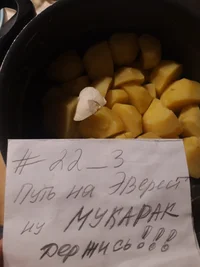 # 22_3
Путь на Эверест
ну МУКАРАК
держись!!!